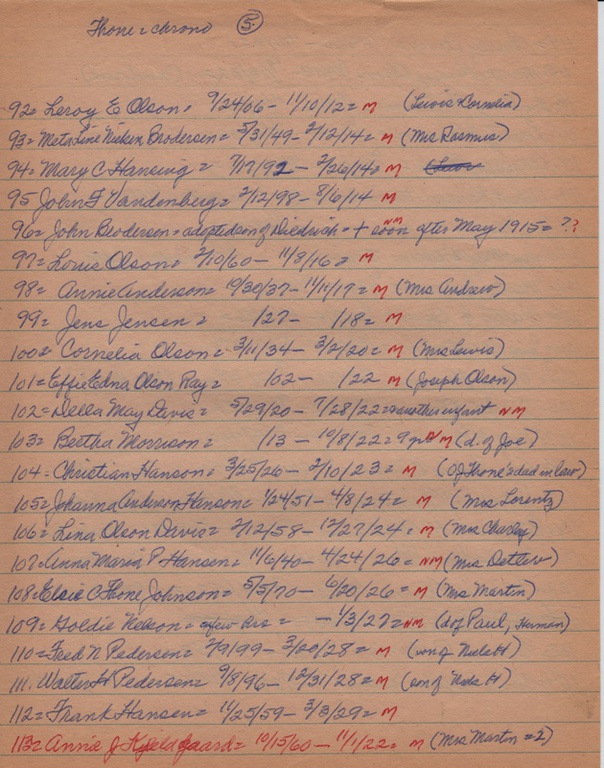 Thone = chrono (5)
92= Leroy E Olson = 9/24/06 - 11/10/12 = M (Lewis Cornelia)
93= Metaline Nicken Brodersen = 5/31/49 - 2/12/14 = M (Mrs Rasmus)
94= Mary C Hansing = 7/17/92 - 2/26/14 = M
95 John F Vandenburg = 2/12/98 - 8/6/14 M
96= John Brodersen = adopted son of Diedrich = + soon after May 1915 = ?? NM
97= Louis Olson = 2/10/60 - 11/8/16 = M
98= Annie Anderson = 10/30/37 - 11/11/17 = M (Mrs Andrew)
99= Jens Jensen = /27 - /18 = M
100= Cornelia Olson = 3/11/34 - 3/2/20 = M (Mrs Lewis)
101= Effie Edna Olson Ray = /02 - /22 M (Joseph Olson)
102= Della May Davis = 5/29/20 - 7/28/22 = another infant NM
103= Bertha Morrison = /13 - 10/8/22 = 9 yr NM (d. of Joe)
104- Christian Hanson = 3/25/26 - 2/10/23 = M (of Thone's dad in law)
105= Johanna Anderson Hanson = 1/24/51 - 4/8/24 = M (Mrs Lorentz)
106= Lina Olson Davis = 2/12/58 - 12/27/24 = M (Mrs Charley)
107= Anna Maria P Hansen = 11/6/40 - 4/24/26 = NM (Mrs Detlew)
108= Elsie C Thone Johnson = 5/5/70 - 6/20/26 = M (Mrs Martin)
109= Goldie Nelson = a few hrs = - 1/3/27 = NM (d of Paul, Herman)
110= Fred N Pedersen = 2/9/99 - 3/20/28 = M (son of Niels H)
111. Walter H Pedersen = 9/8/96 - 12/31/28 = M (son of Niels H)
112= Frank Hansen = 11/25/59 - 3/3/29 = M
113= Annie J Kjeldgaard = 10/15/60 - 11/1/22 = M (Mrs Martin = 2)